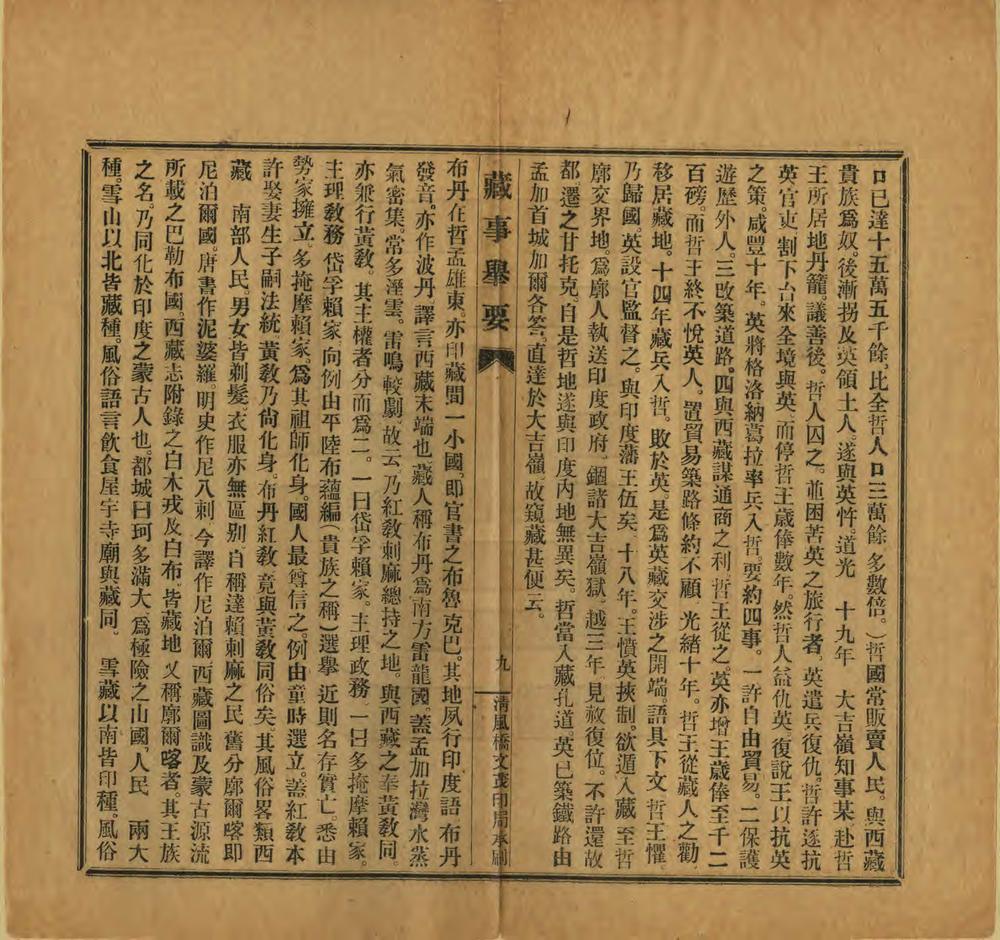 口已達十五萬五千餘、比全哲人口三萬餘、多數倍。）哲國常販賣人民。與西藏
貴族爲奴。後漸拐及英領土人。遂與英忤。道光　十九年　大吉嶺知事某　赴哲
王所居地丹籠。議善後。哲人囚之。並困苦英之旅行者、英遣兵復仇。哲許逐抗
英官吏、割下台來全境與英、而停哲王歲俸數年。然哲人益仇英、復說王以抗英
之策。咸豐十年。英將格洛納葛拉率兵入哲。要約四事。一許自由貿易。二保護
遊歷外人。三改築道路。四與西藏謀通商之利、哲王從之。英亦增王歲俸至千二
百磅。而哲王終不悅英人。置貿易築路條約不顧　光緒十年。哲王從藏人之勸、
移居藏地。十四年藏兵入哲。敗於英。是爲英藏交涉之開端。語具下文　哲王懼、
乃歸國。英設官監督之。與印度藩王伍矣、十八年。王憤英挾制、欲遁入藏　至哲
廓交界地。爲廓人執送印度政府。錮諸大吉嶺獄、越三年、見赦復位。不許還故
都、遷之甘托克。自是哲地遂與印度內地無異矣。哲當入藏孔道。英已築鐵路由
孟加首城加爾各答、直達於大吉嶺、故窺藏甚便云。
藏事舉要
九
清風橋文茂印局承刷
布丹在哲孟雄東。亦印藏間一小國、卽官書之布魯克巴。其地夙行印度語　布丹
發音。亦作波丹、譯言西藏末端也、藏人稱布丹爲南方雷龍國、蓋孟加拉灣水蒸
氣密集。常多溼雲。雷鳴較劇、故云、乃紅敎刺麻總持之地。與西藏之奉黃敎同。
亦兼行黃敎。其主權者分而爲二。一曰岱孚賴家。主理政務、一曰多掩摩賴家。
主理敎務　岱孚賴家、向例由平陸布蘊編（貴族之稱）選舉　近則名存實亡。悉由
勢家擁立、多掩摩賴家。爲其祖師化身。國人最尊信之。例由童時選立。蓋紅敎本
許娶妻生子嗣法統、黃敎乃尙化身。布丹紅敎、竟與黃敎同俗矣。其風俗畧類西
藏　南部人民。男女皆剃髮、衣服亦無區别、自稱達賴刺麻之民　舊分廓爾喀、卽
尼泊爾國。唐書作泥婆羅。明史作尼八刺、今譯作尼泊爾　西藏圖識及蒙古源流
所載之巴勒布國。西藏志附錄之白木戎及白布、皆藏地　又稱廓爾喀者。其王族
之名、乃同化於印度之蒙古人也。都城曰珂多滿大、爲極險之山國、人民　兩大
種。雪山以北皆藏種。風俗語言飲食屋宇寺廟與藏同。　雪藏以南皆印種。風俗